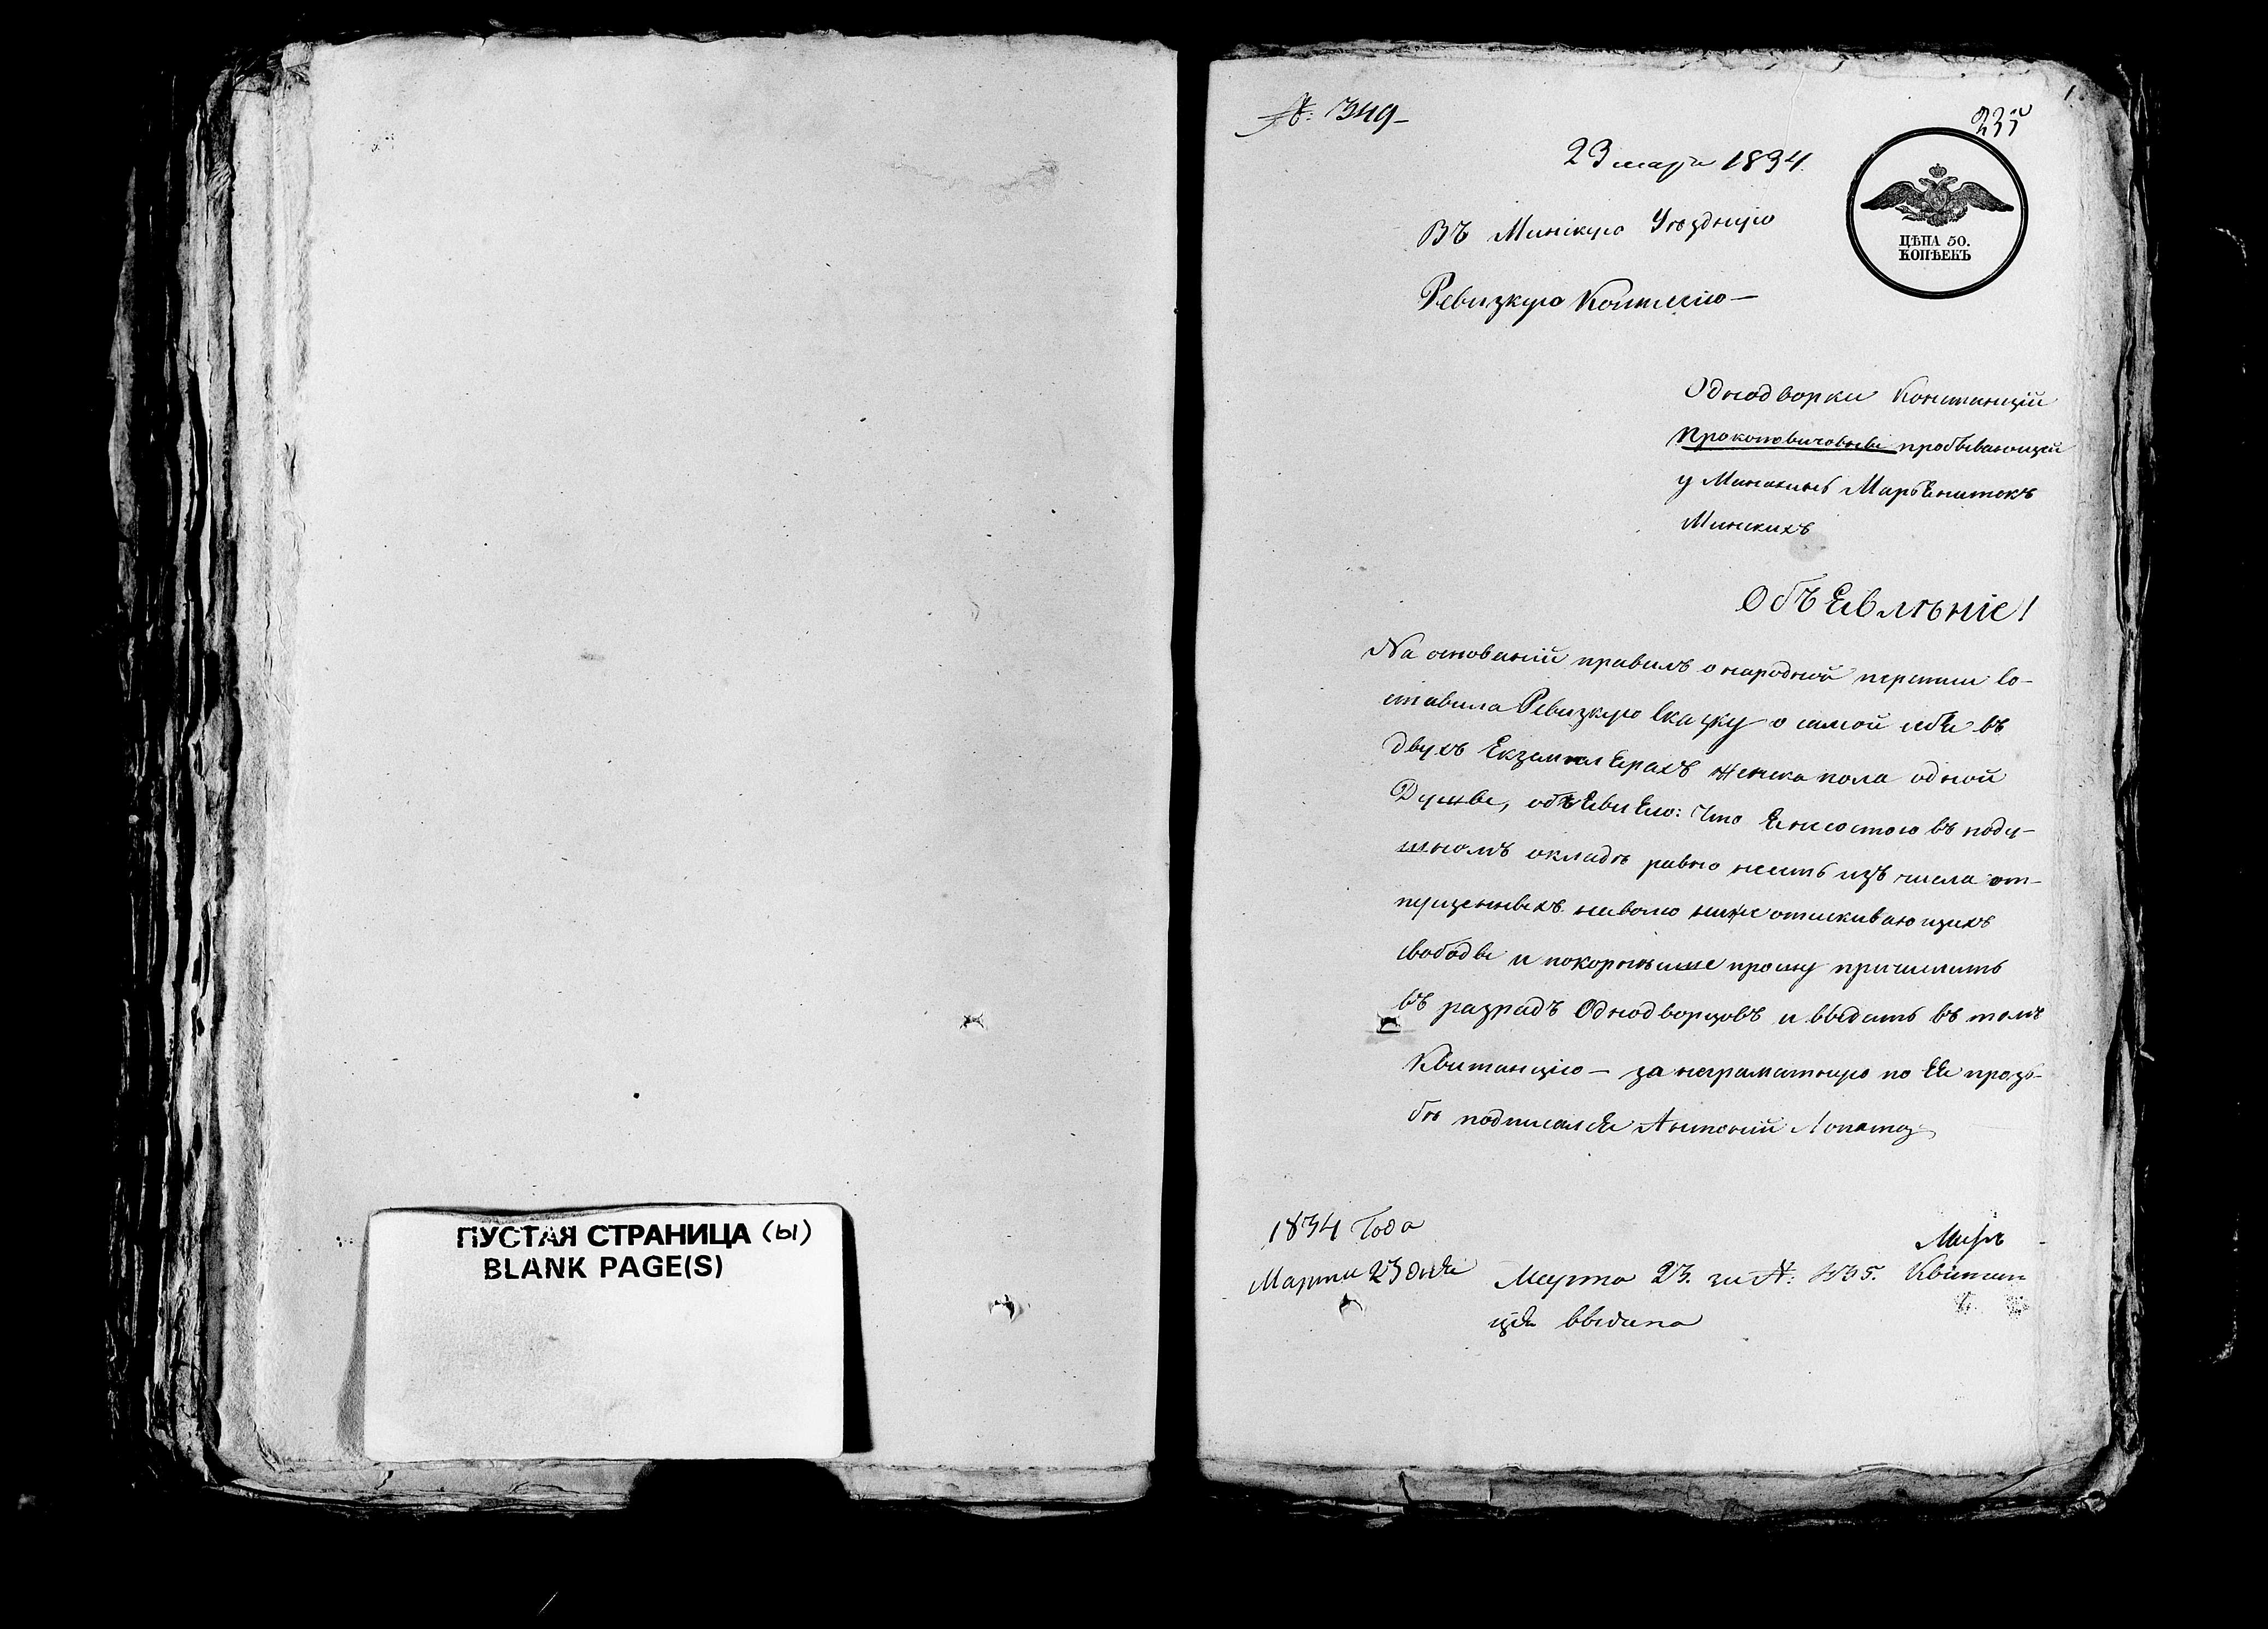 ПУСТАЯ СТРАНИЦА (ы)
BLANK PAGE(S)
№: 349
1.
23 марта 1834.
ЦѢНА 50.
КОПѢЕКЪ
Въ Минскую Уѣздную
Ревизкую Комисію
Однодворки Констанціи
Прокоповичовны пробывающей
у Манахинь Марьѣнитокъ
Минскихъ
Объѣвлѣніе!
На основаніи правилъ о народной переписи со-
ставила Ревизкую сказку о самой себѣ въ
двухъ Екземплѣрахъ женска пола одной
Душы, объѣвлѣю: что ѣ несостою въ поду-
шномъ окладѣ равно несть изъ числа от-
пущенныхъ наволю ниже отыскивающихъ
свободы и покорнѣйше прошу причислить
въ разрадъ Однодворцовъ и выдать въ томъ
Квитанцію — за неграматную по Еѣ прозь-
бѣ подписалсѣ Антоній Лопата
1834 Года
Марта 23 днѣ
Марта 23. за №: Квитан
цѣ выдана